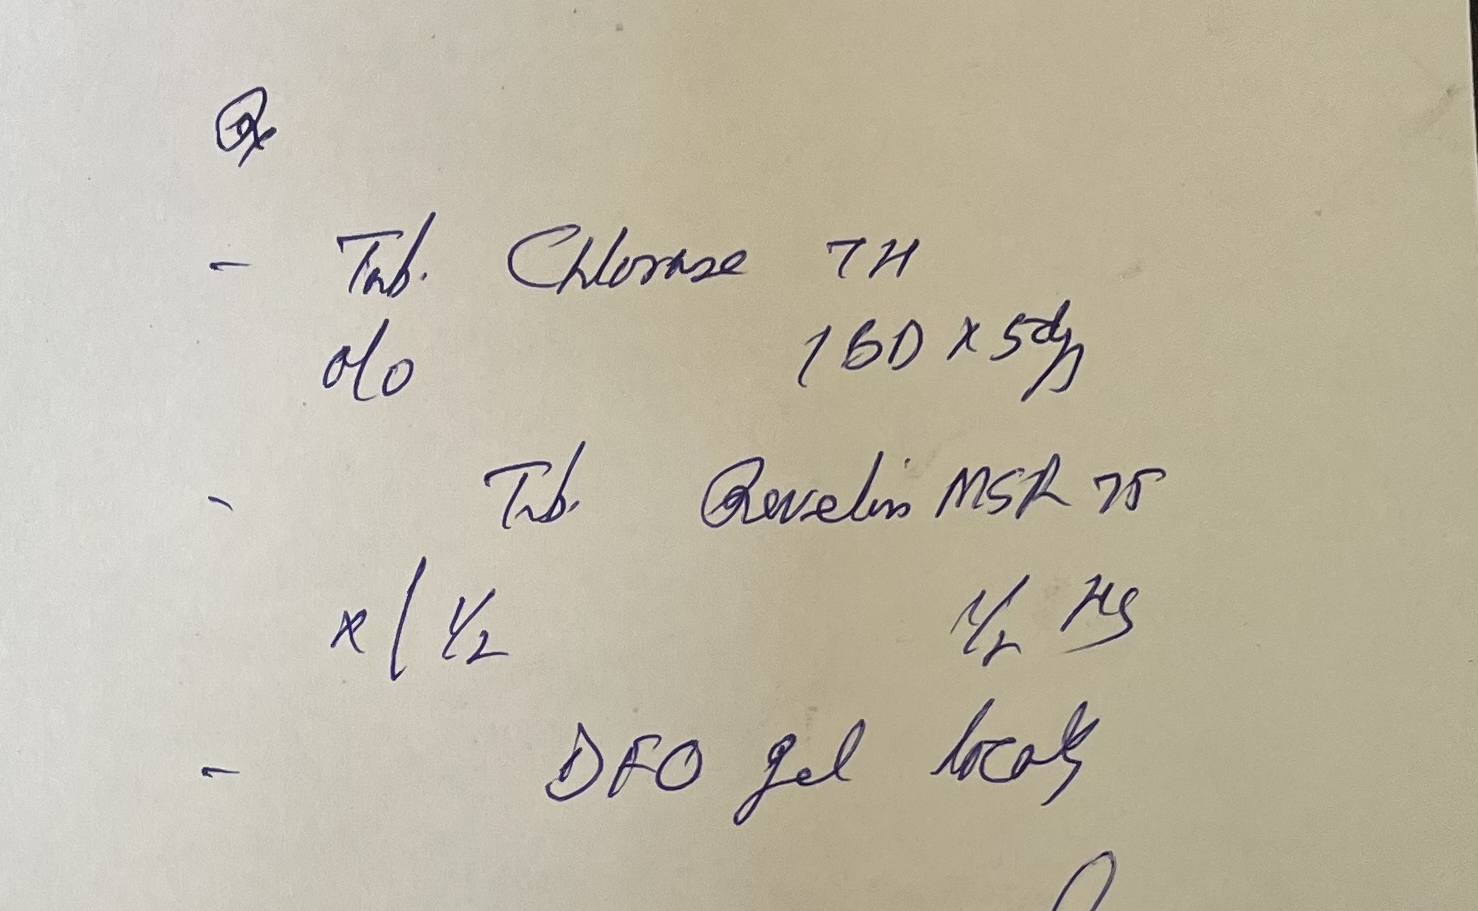 Rx
- Tab. Chlorase TH
o/o 1 BD x 5dys
- Tab. Revelin MSR 75
x/ 1/2 1/2 HS
- DFO gel locally